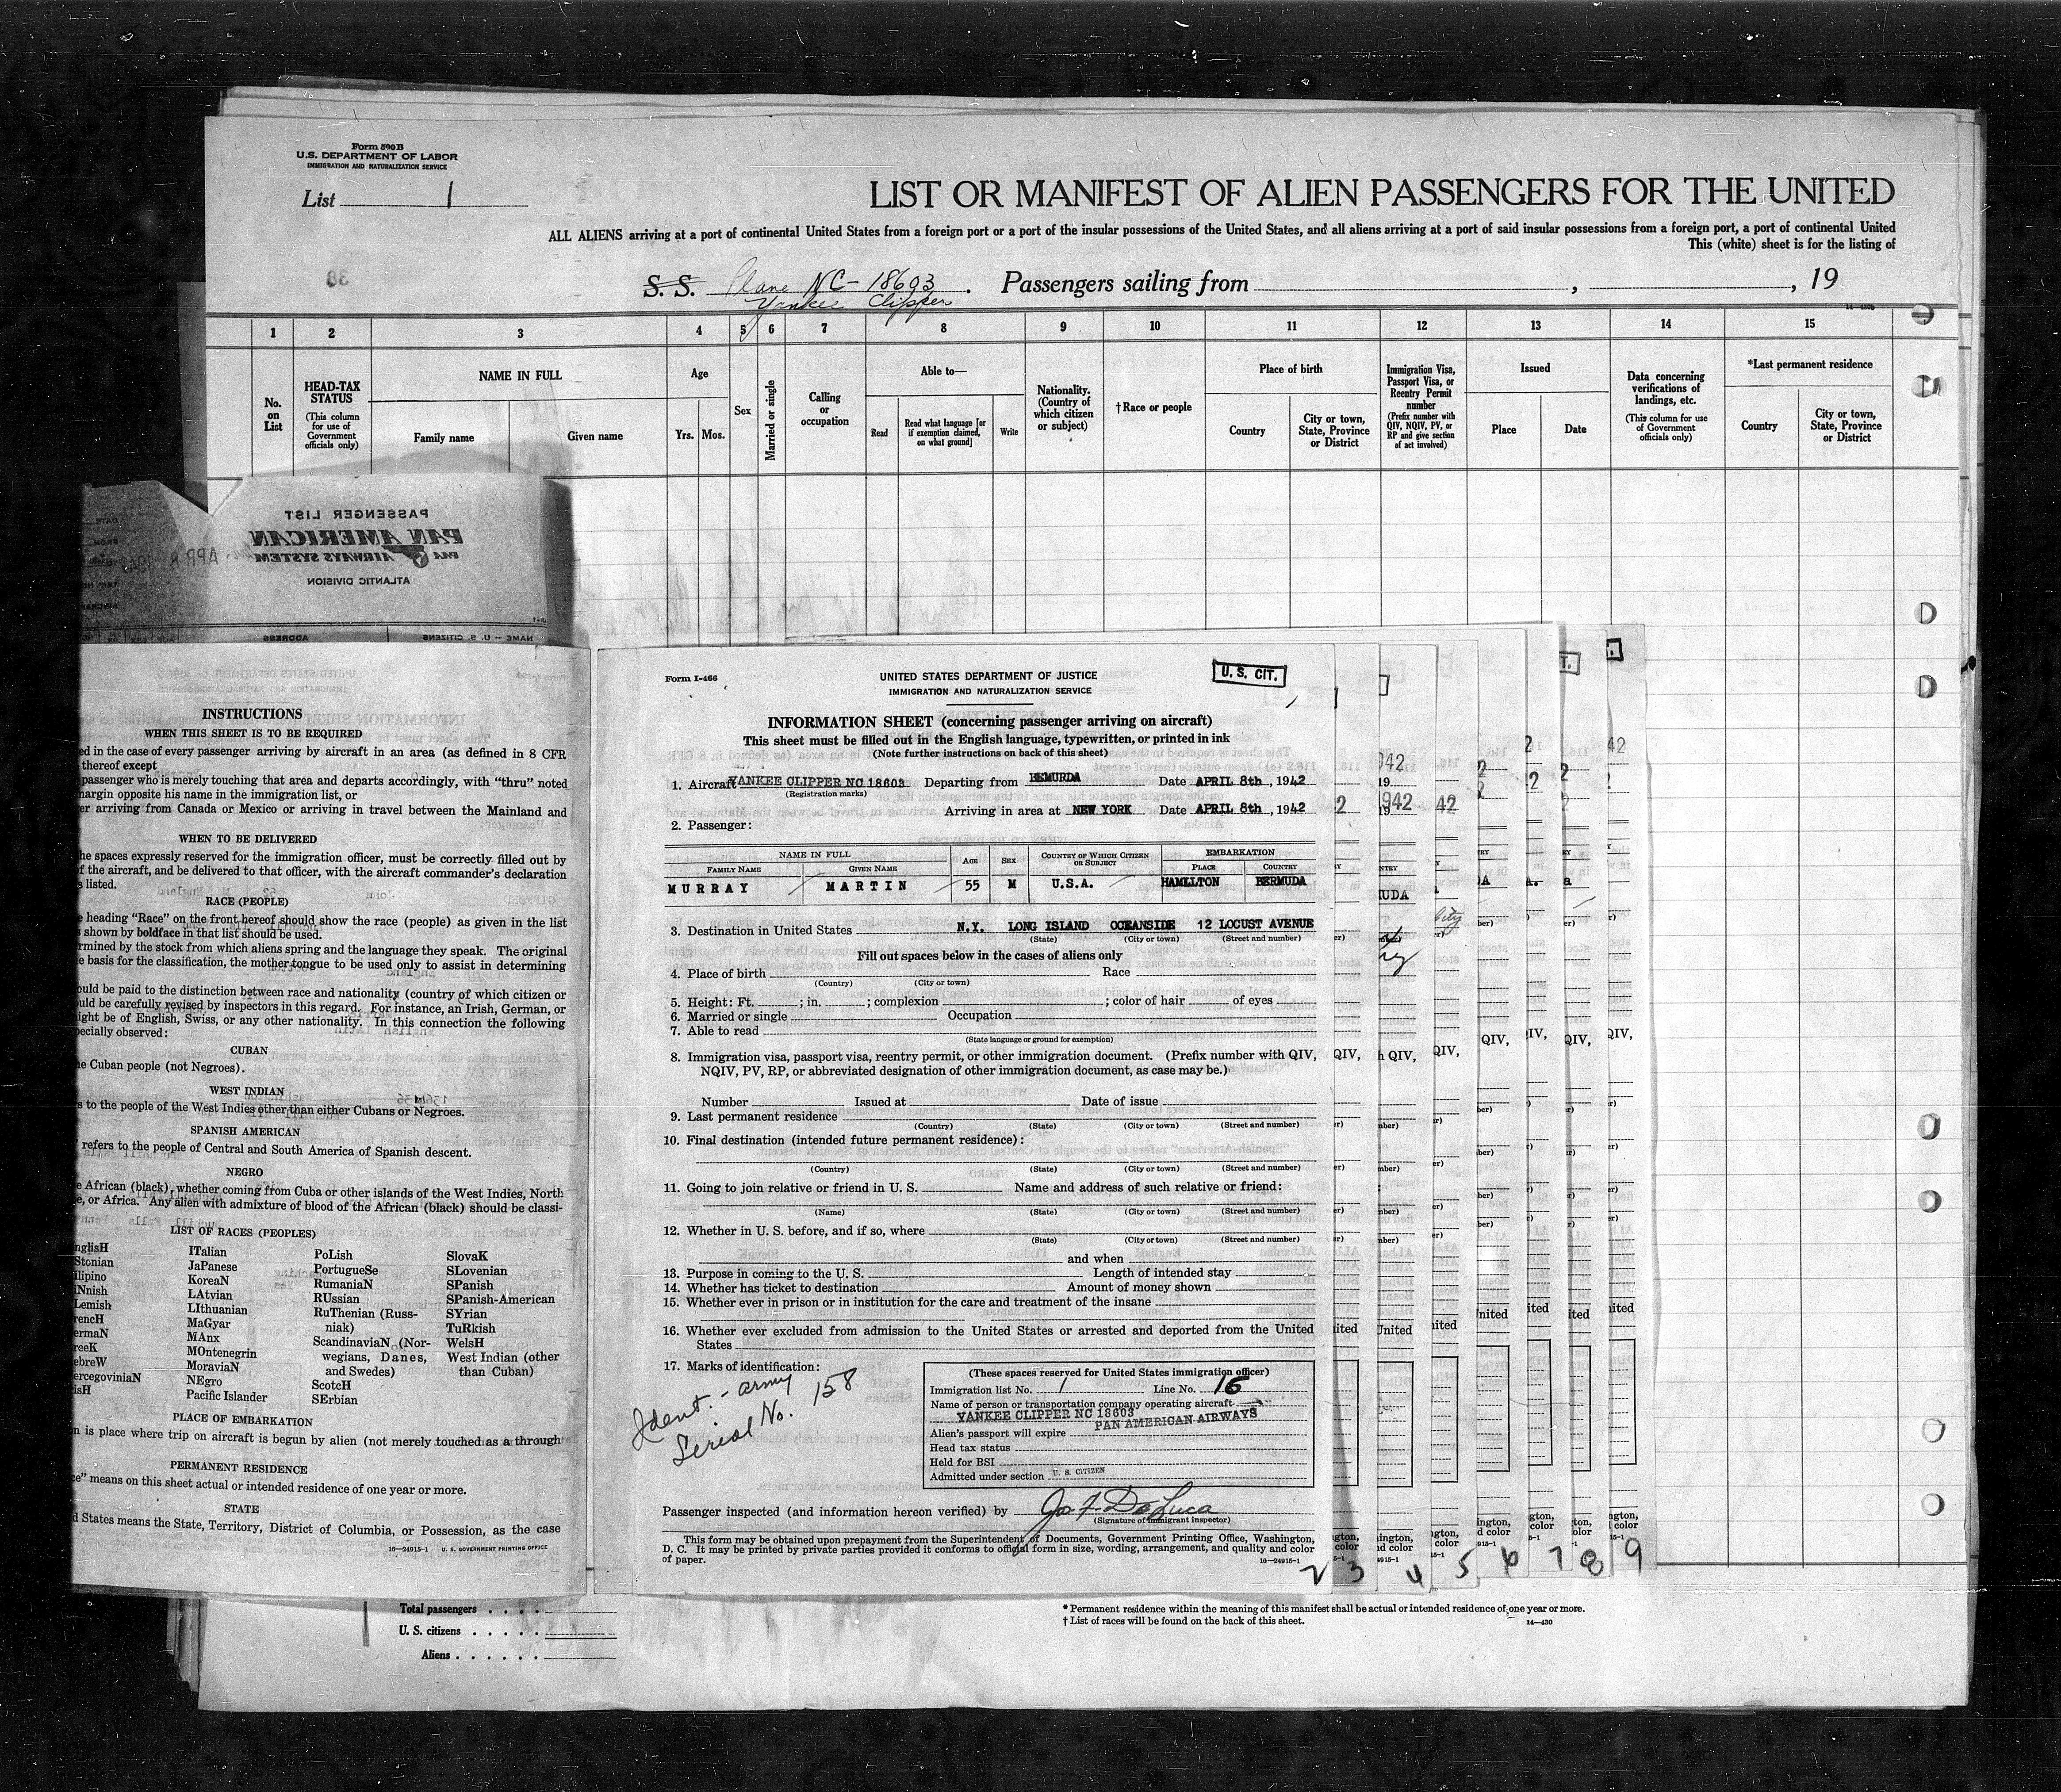 Form 500B
U.S. DEPARTMENT OF LABOR
IMMIGRATION AND NATURALIZATION SERVICE
List 1
LIST OR MANIFEST OF ALIEN PASSENGERS FOR THE UNITED
ALL ALIENS arriving at a port of continental United States from a foreign port or a port of the insular possessions of the United States, and all aliens arriving at a port of said insular possessions from a foreign port, a port of continental United
This (white) sheet is for the listing of
38
S. S. Plane NC-18603. Passengers sailing from , , 19
Yankee Clipper
1 2 3 4 5 6 7 8 9 10 11 12 13 14 15
No. on List
HEAD-TAX STATUS
(This column for use of Government officials only)
NAME IN FULL
Family name Given name
Age
Yrs. Mos.
Sex
Married or single
Calling or occupation
Able to—
Read
Read what language [or if exemption claimed, on what ground]
Write
Nationality. (Country of which citizen or subject)
†Race or people
Place of birth
Country
City or town, State, Province or District
Immigration Visa, Passport Visa, or Reentry Permit number
(Prefix number with QIV, NQIV, PV, or RP and give section of act involved)
Issued
Place Date
Data concerning verifications of landings, etc.
(This column for use of Government officials only)
*Last permanent residence
Country
City or town, State, Province or District
PASSENGER LIST
PAN AMERICAN
PAA AIRWAYS SYSTEM
ATLANTIC DIVISION
NAME — U. S. CITIZENS ADDRESS
INSTRUCTIONS
WHEN THIS SHEET IS TO BE REQUIRED
ed in the case of every passenger arriving by aircraft in an area (as defined in 8 CFR
thereof except
passenger who is merely touching that area and departs accordingly, with "thru" noted
margin opposite his name in the immigration list, or
er arriving from Canada or Mexico or arriving in travel between the Mainland and
WHEN TO BE DELIVERED
he spaces expressly reserved for the immigration officer, must be correctly filled out by
f the aircraft, and be delivered to that officer, with the aircraft commander's declaration
s listed.
RACE (PEOPLE)
e heading "Race" on the front hereof should show the race (people) as given in the list
s shown by boldface in that list should be used.
rmined by the stock from which aliens spring and the language they speak. The original
e basis for the classification, the mother tongue to be used only to assist in determining
ould be paid to the distinction between race and nationality (country of which citizen or
uld be carefully revised by inspectors in this regard. For instance, an Irish, German, or
ight be of English, Swiss, or any other nationality. In this connection the following
pecially observed:
CUBAN
he Cuban people (not Negroes).
WEST INDIAN
s to the people of the West Indies other than either Cubans or Negroes.
SPANISH AMERICAN
refers to the people of Central and South America of Spanish descent.
NEGRO
e African (black), whether coming from Cuba or other islands of the West Indies, North
e, or Africa. Any alien with admixture of blood of the African (black) should be classi-
LIST OF RACES (PEOPLES)
nglisH ITalian PoLish SlovaK
Stonian JaPanese PortugueSe SLovenian
ilipino KoreaN RumaniaN SPanish
iNnish LAtvian RUssian SPanish-American
Lemish LIthuanian RuThenian (Russ- SYrian
rencH MaGyar niak) TuRkish
ermaN MAnx ScandinaviaN (Nor- WelsH
reeK MOntenegrin wegians, Danes, West Indian (other
ebreW MoraviaN and Swedes) than Cuban)
ercegoviniaN NEgro ScotcH
isH Pacific Islander SErbian
PLACE OF EMBARKATION
n is place where trip on aircraft is begun by alien (not merely touched as a through
PERMANENT RESIDENCE
ce" means on this sheet actual or intended residence of one year or more.
STATE
d States means the State, Territory, District of Columbia, or Possession, as the case
16—24915-1 U. S. GOVERNMENT PRINTING OFFICE
Form I-466
UNITED STATES DEPARTMENT OF JUSTICE
IMMIGRATION AND NATURALIZATION SERVICE
U. S. CIT.
INFORMATION SHEET (concerning passenger arriving on aircraft)
This sheet must be filled out in the English language, typewritten, or printed in ink
(Note further instructions on back of this sheet)
1. Aircraft YANKEE CLIPPER NC 18603 Departing from BEMURDA Date APRIL 8th, 1942
(Registration marks)
Arriving in area at NEW YORK Date APRIL 8th, 1942
2. Passenger:
NAME IN FULL AGE SEX COUNTRY OF WHICH CITIZEN OR SUBJECT EMBARKATION
FAMILY NAME GIVEN NAME PLACE COUNTRY
MURRAY MARTIN 55 M U.S.A. HAMLLTON BERMUDA
3. Destination in United States N.Y. LONG ISLAND OCEANSIDE 12 LOCUST AVENUE
(State) (City or town) (Street and number)
Fill out spaces below in the cases of aliens only
4. Place of birth Race
(Country) (City or town)
5. Height: Ft. ; in. ; complexion ; color of hair of eyes
6. Married or single Occupation
7. Able to read
(State language or ground for exemption)
8. Immigration visa, passport visa, reentry permit, or other immigration document. (Prefix number with QIV,
NQIV, PV, RP, or abbreviated designation of other immigration document, as case may be.)
Number Issued at Date of issue
9. Last permanent residence
(Country) (State) (City or town) (Street and number)
10. Final destination (intended future permanent residence):
(Country) (State) (City or town) (Street and number)
11. Going to join relative or friend in U. S. Name and address of such relative or friend:
(Name) (State) (City or town) (Street and number)
12. Whether in U. S. before, and if so, where
(State) (City or town) (Street and number)
and when
13. Purpose in coming to the U. S. Length of intended stay
14. Whether has ticket to destination Amount of money shown
15. Whether ever in prison or in institution for the care and treatment of the insane
16. Whether ever excluded from admission to the United States or arrested and deported from the United
States
17. Marks of identification:
Ident. - army
Serial No. 158
(These spaces reserved for United States immigration officer)
Immigration list No. 1 Line No. 16
Name of person or transportation company operating aircraft
YANKEE CLIPPER NC 18603 PAN AMERICAN AIRWAYS
Alien's passport will expire
Head tax status
Held for BSI
Admitted under section U. S. CITIZEN
Passenger inspected (and information hereon verified) by Jos F. De Luca
(Signature of immigrant inspector)
This form may be obtained upon prepayment from the Superintendent of Documents, Government Printing Office, Washington,
D. C. It may be printed by private parties provided it conforms to official form in size, wording, arrangement, and quality and color
of paper.
16—24915-1
2 3 4 5 6 7 8 9
Total passengers
U. S. citizens
Aliens
* Permanent residence within the meaning of this manifest shall be actual or intended residence of one year or more.
† List of races will be found on the back of this sheet.
14—430